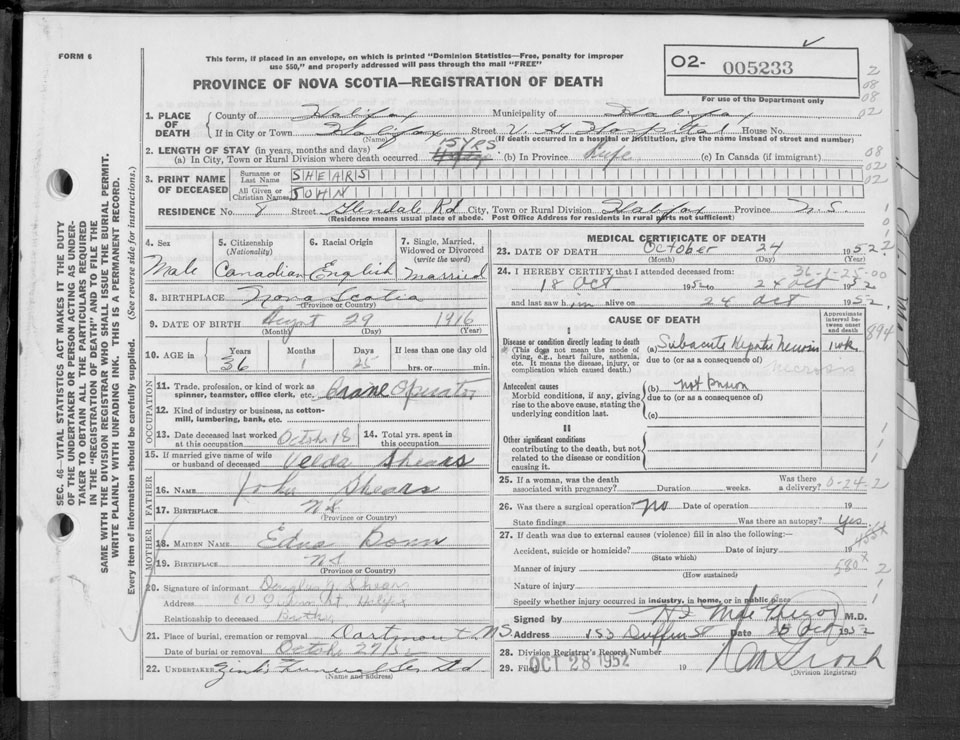 FORM 6
This form, if placed in an envelope, on which is printed "Dominion Statistics—Free, penalty for improper
use $50," and properly addressed will pass through the mail "FREE"
PROVINCE OF NOVA SCOTIA—REGISTRATION OF DEATH
O2- 005233
For use of the Department only
1. PLACE OF DEATH
County of Halifax Municipality of Halifax
If in City or Town Halifax Street V. G. Hospital House No.
(Name) (If death occurred in a hospital or institution, give the name instead of street and number)
2. LENGTH OF STAY (in years, months and days)
(a) In City, Town or Rural Division where death occurred 15 YRS (b) In Province Life (c) In Canada (if immigrant)
3. PRINT NAME OF DECEASED
Surname or Last Name SHEARS
All Given or Christian Names JOHN
RESIDENCE No. 8 Street Glendale Rd City, Town or Rural Division Halifax Province N.S.
(Residence means usual place of abode. Post Office Address for residents in rural parts not sufficient)
4. Sex
Male
5. Citizenship (Nationality)
Canadian
6. Racial Origin
English
7. Single, Married, Widowed or Divorced (write the word)
Married
8. BIRTHPLACE Nova Scotia
(Province or Country)
9. DATE OF BIRTH August 29 1916
(Month) (Day) (Year)
10. AGE in Years Months Days If less than one day old
36 1 25 hrs. or min.
OCCUPATION
11. Trade, profession, or kind of work as spinner, teamster, office clerk, etc. Crane Operator
12. Kind of industry or business, as cotton-mill, lumbering, bank, etc.
13. Date deceased last worked at this occupation October 18
14. Total yrs. spent in this occupation
15. If married give name of wife or husband of deceased Velda Shears
FATHER
16. NAME John Shears
17. BIRTHPLACE NS
(Province or Country)
MOTHER
18. MAIDEN NAME Edna
19. BIRTHPLACE NS
(Province or Country)
20. Signature of informant Douglas G. Shears
Address Halifax
Relationship to deceased Brother
21. Place of burial, cremation or removal Dartmouth, NS
Date of burial or removal October 27/52
22. UNDERTAKER Zink's Funeral Ltd
(Name and address)
MEDICAL CERTIFICATE OF DEATH
23. DATE OF DEATH October 24 1952
(Month) (Day) (Year)
24. I HEREBY CERTIFY that I attended deceased from:
36-1-25-00
18 Oct 1952 to 24 Oct 1952
and last saw him alive on 24 Oct 1952
CAUSE OF DEATH
Approximate interval between onset and death
894
I
Disease or condition directly leading to death
(This does not mean the mode of dying, e.g., heart failure, asthenia, etc. It means the disease, injury, or complication which caused death.)
(a) Subacute Hepatic Necrosis 1 wk
due to (or as a consequence of)
necrosis
Antecedent causes
Morbid conditions, if any, giving rise to the above cause, stating the underlying condition last.
(b) not known
due to (or as a consequence of)
(c)
II
Other significant conditions contributing to the death, but not related to the disease or condition causing it.
25. If a woman, was the death associated with pregnancy? Duration weeks. Was there a delivery?
0-24-2
26. Was there a surgical operation? No Date of operation 19
State findings Was there an autopsy? yes
27. If death was due to external causes (violence) fill in also the following:—
Accident, suicide or homicide? Date of injury 19
(State which)
580 X
Manner of injury
(How sustained)
Nature of injury
Specify whether injury occurred in industry, in home, or in public place
Signed by M.D.
Address 153 Date 25 Oct 1952
28. Division Registrar's Record Number
29. Filed OCT 28 1952 19
(Division Registrar)
SEC. 46—VITAL STATISTICS ACT MAKES IT THE DUTY
OF THE UNDERTAKER OR PERSON ACTING AS UNDER-
TAKER TO OBTAIN ALL THE PARTICULARS REQUIRED
IN THE "REGISTRATION OF DEATH" AND TO FILE THE
SAME WITH THE DIVISION REGISTRAR WHO SHALL ISSUE THE BURIAL PERMIT.
WRITE PLAINLY WITH UNFADING INK. THIS IS A PERMANENT RECORD.
Every item of information should be carefully supplied. (See reverse side for instructions.)